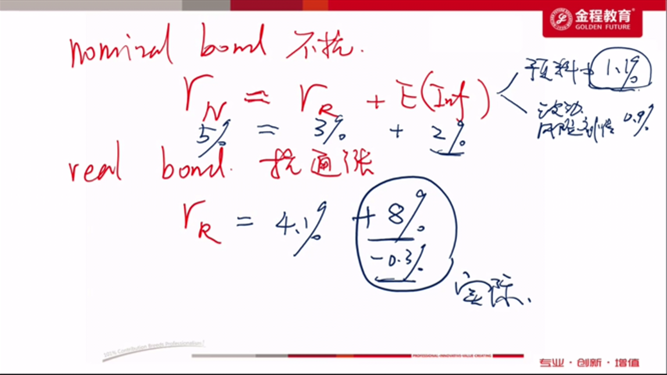 金程教育
GOLDEN FUTURE
nominal bond 不抗.
r_N = r_R + E(Inf)
预料中 1.1%
波动 0.9%
5% = 3% + 2%
real bond. 抗通涨
r_R = 4.1% + 8%
-0.3%
实际.
100% Contribution Breeds Professionalism!
专业·创新·增值